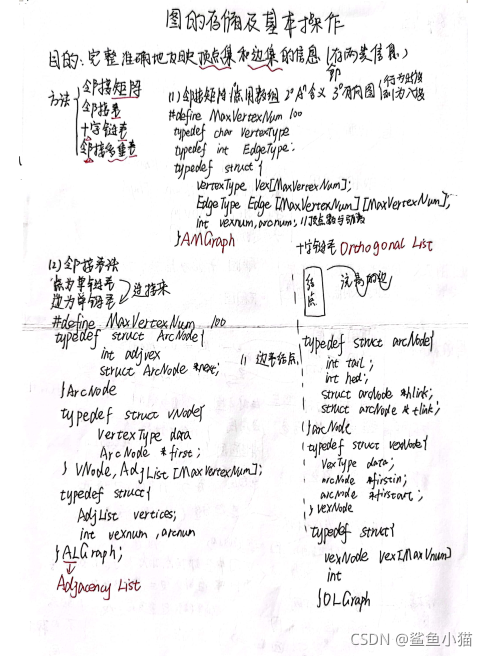 图的存储及基本操作
目的：完整准确地反映顶点集和边集的信息（存两类信息）
即
方法
邻接矩阵
邻接表
十字链表
邻接多重表
(1) 邻接矩阵 借用数组 2° Aⁿ含义 3°有向图 行为出度 列为入度
#define MaxVertexNum 100
typedef char VertexType
typedef int EdgeType;
typedef struct{
VertexType Vex[MaxVertexNum];
EdgeType Edge[MaxVertexNum][MaxVertexNum];
int vexnum,arcnum; //顶点数与边数
}AMGraph
(2) 邻接表法
点为单链表
边为单链表
连接来
#define MaxVertexNum 100
typedef struct ArcNode{
int adjvex
struct ArcNode *next;
}ArcNode
// 边表结点
typedef struct VNode{
VertexType data
ArcNode *first;
}VNode,AdjList[MaxVertexNum];
typedef struct{
AdjList vertices;
int vexnum,arcnum
}ALGraph;
Adjacency List
十字链表 Orthogonal List
结点
typedef struct arcNode{
int tail;
int hed;
struct arcNode *hlink;
struct arcNode *tlink;
}arcNode
typedef struct vexNode{
VexType data;
arcNode *firstin;
arcNode *firstout;
}vexNode
typedef struct{
vexNode vex[MaxVnum]
int
}OLGraph
CSDN @鲨鱼小猫